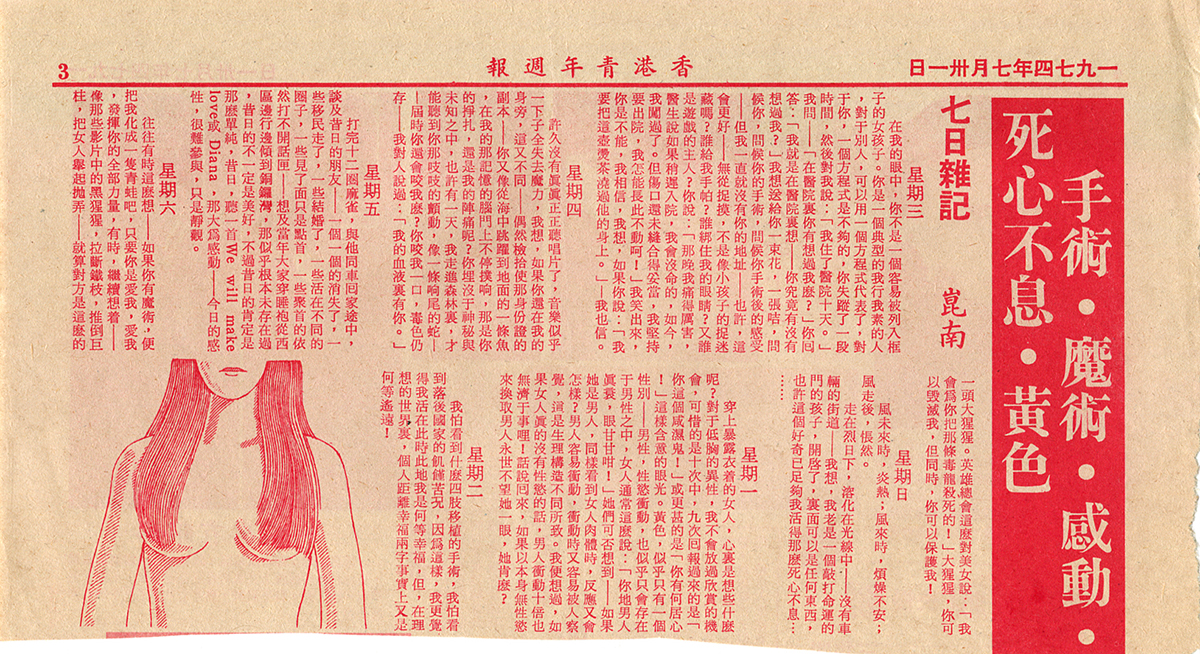 3
香港青年週報
一九七四年七月卅一日
手術・魔術・感動・
死心不息・黃色
七日雜記
崑南
星期三
在我的眼中，你不是一個容易被列入框
子的女孩子。你是一個典型的我行我素的人
，對于別人，可以用一個方程式代表了，對
于你，一個方程式是不夠的，你失蹤了一段
時間，然後對我說：「我住了醫院十天。」
我問：「在醫院裏你有想過我麽？」你囘
答：「我就是在醫院裏想──你究竟有沒有
想過我？」我想送給你一束花，一張咭，問
候你，問候你的手術，問候你手術後的感受
──但我一直就沒有你的地址──也許，這
會更好──無從捉摸，不是像小孩子的捉迷
藏嗎？誰給我手帕？誰綁住我的眼睛？又誰
是遊戲的主人？你說：「那晚我痛得厲害，
醫生說如果稍遲入院，我會沒命的，如今，
我闖過了。但傷口還未縫合得妥當，我堅持
要出院，我怎能長此不動呵！」我笑出來，
你是不能，我相信，我想，如果你說：「我
要把這壺燙茶澆過他的身上。」──我也信。
星期四
許久沒有眞眞正正聽唱片了，音樂似乎
一下子全失去魔力，我想，如果你還在我的
身旁，這又不同──偶然檢拾使那身份證的
副本──你又像從海中跳躍到地面的一條魚
，在我的那記憶的腦門上不停撲响，那是你
的掙扎，還是我的陣痛呢？你埋沒于神秘與
未知之中，也許有一天，我走進森林裏，才
能聽到你那吱吱的顫動，像一條响尾的蛇─
─屆時你還會咬我麽？你咬一口，毒色仍
存──我對人說過：「我的血液裏有你。」
星期五
打完十二圈麻雀，與他同車囘家途中，
談及昔日的朋友──一個一個的消失了，一
些移民走了，一些結婚了，一些活在不同的
圈子，一些見了面只是點首，一些聚首的依
然打不開話匣──想及當年大家穿睡袍從西
區邊行邊傾到銅鑼灣，那似乎根本未存在過
，昔日的不一定是美好，不過昔日的肯定是
那麽單純，昔日，聽一首We will make
love或 Diana，那大爲感動──今日的感
性，很難參與，只是靜觀。
星期六
往往有時這麽想──如果你有魔術，便
把我化成一隻青蛙吧，只要你是愛我，愛我
，發揮你的全部力量，有時，繼續想着──
像那些影片中的黑猩猩，拉斷鐵枝，推倒巨
柱，把女人舉起拋弄──就算對方是這麽的
一頭大猩猩。英雄總會這麽對美女說：「我
會爲你把那條毒龍殺死的！」大猩猩，你可
以毁滅我，但同時，你可以保護我！
星期日
風未來時，炎熱；風來時，煩燥不安；
風走後，悵然。
走在烈日下，溶化在光線中──沒有車
輛的街道──我想，我老是一個敲打命運的
門的孩子，開啓了，裏面可以是任何東西，
也許這個好奇已足夠我活得那麽死心不息…
……
星期一
穿上暴露衣着的女人，心裏是想些什麽
呢？對于低胸的異性，我不會放過欣賞的機
會，可惜的是十次中，九次囘報過來的是「
你這個咸濕鬼！」或更甚的是「你有何居心
！」這樣含意的眼光。黃色，似乎只有一個
性別──男性，性慾衝動，也似乎只會存在
于男性之中，女人通常這麽說：「你地男人
眞衰，眼甘甘咁！」她們可否想到──如果
她是男人，同樣看到女人肉體時，反應又會
怎樣？男人容易衝動，衝動時又容易被人察
覺，這是生理構造不同所致。我便想過，如
果女人眞的沒有性慾的話，男人衝動十倍也
無濟于事哩！話說囘來，如果以本身無性慾
來換取男人永世不望她一眼，她肯麽？
星期二
我怕看到什麽四肢移植的手術，我怕看
到落後國家的飢饉苦況，因爲這樣，我更覺
得我活在此時此地我是何等幸福，但，在理
想的世界裏，個人距離幸福兩字事實上又是
何等遙遠！